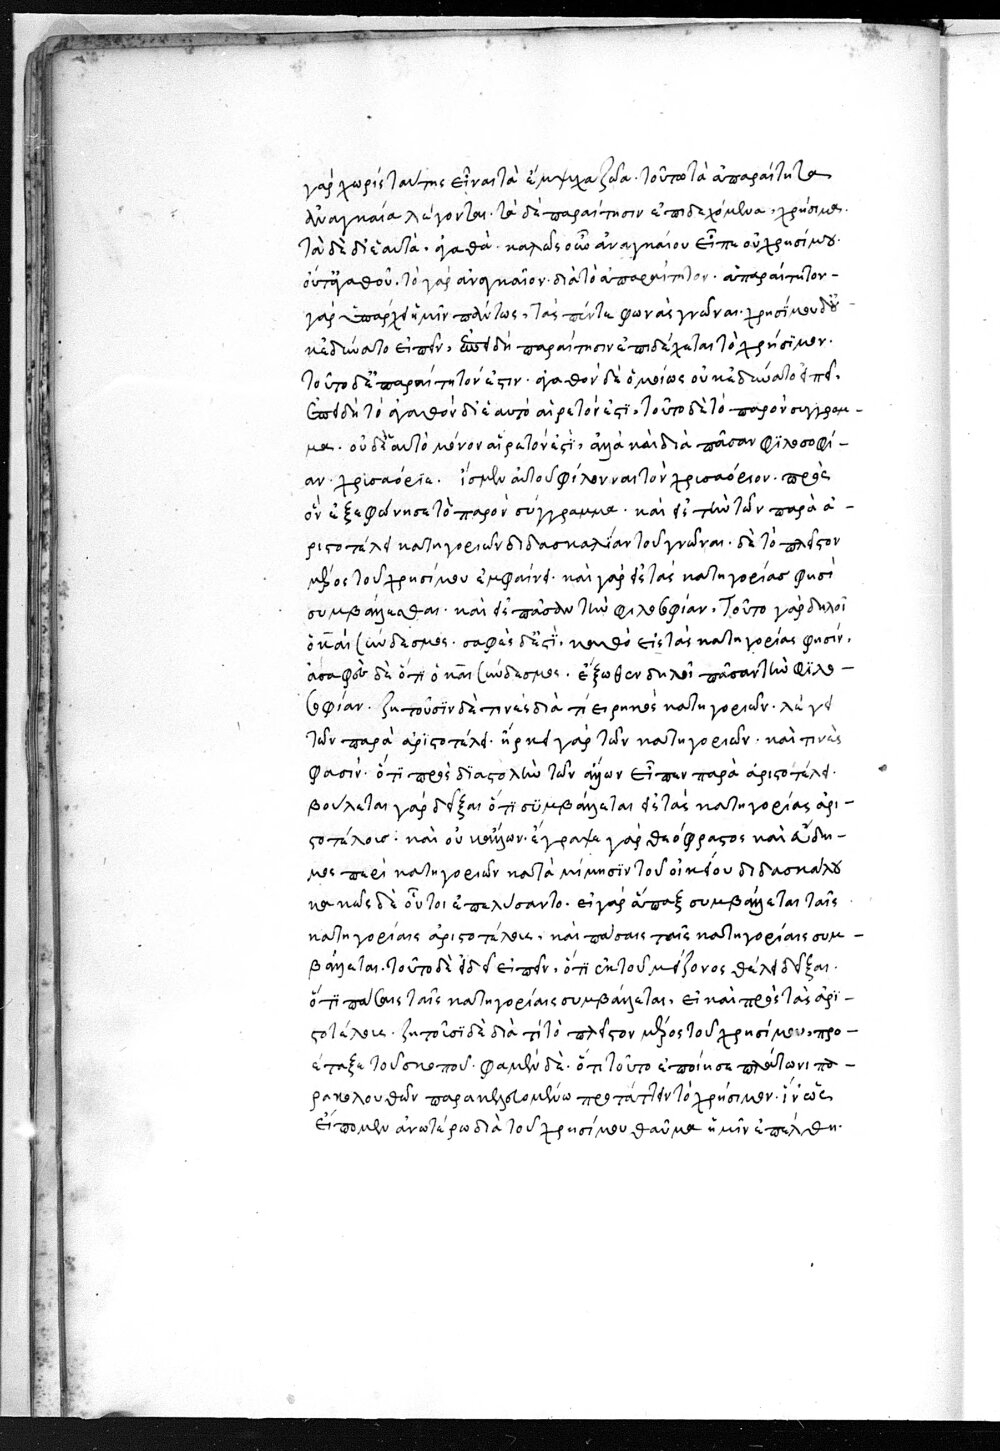 γὰρ χωρὶς ταύτης εἶναι τὰ ἔμψυχα ζῶα· τούτω τὰ ἀπαραίτητα
ἀναγκαῖα λέγονται· τὰ δὲ παραίτησιν ἐπιδεχόμενα, χρήσιμα·
τὰ δὲ δι' ἑαυτὰ, ἀγαθὰ· καλῶς οὖν ἀναγκαίου εἶπε οὐ χρησίμου·
οὔτ' ἀγαθοῦ· τὸ γὰρ ἀναγκαῖον· διὰ τὸ ἀπαραίτητον· ἀπαραίτητον
γὰρ ὑπάρχει ἡμῖν πάντως, τὰς πέντε φωνὰς γνῶναι· χρησίμου δὲ οὐ
κ' ἐδύνατο εἰπεῖν, ἐπειδὴ παραίτησιν ἐπιδέχεται τὸ χρήσιμον·
τοῦτο δὲ ἀπαραίτητόν ἐστιν· ἀγαθὸν δὲ ὁμοίως οὐκ ἐδύνατο εἰπεῖν,
ἐπειδὴ τὸ ἀγαθὸν δι' ἑαυτὸ αἱρετόν ἐστι, τοῦτο δὲ τὸ παρὸν σύγγραμ-
μα· οὐ δι' ἑαυτὸ μόνον αἱρετόν ἐστι, ἀλλὰ καὶ διὰ πᾶσαν φιλοσοφί-
αν· χρισαόριε· ἴσμεν αὐτοῦ φίλον καὶ τὸν χρισαόριον· πρὸς
ὃν ἐξεφώνησε τὸ παρὸν σύγγραμμα· καὶ εἰς τὴν τῶν παρὰ ἀ-
ριστοτέλει κατηγοριῶν διδασκαλίαν τοῦ γνῶναι· δὲ τὸ πλεῖστον
μέρος τοῦ χρησίμου ἐμφαίνει· καὶ γὰρ εἰς τὰς κατηγορίας φησὶ
συμβάλλεσθαι· καὶ εἰς πᾶσαν τὴν φιλοσοφίαν, Τοῦτο γὰρ δηλοῖ
ὁ καὶ σύνδεσμος· σαφὲς δέ ἐστι, καθὸ εἰς τὰς κατηγορίας φησίν,
ἀσαφὲς δὲ ὅτι ὁ καὶ σύνδεσμος· ἔξωθεν δηλοῖ πᾶσαν τὴν φιλο-
σοφίαν· ζητοῦσιν δὲ τινὲς διὰ τί εἰρηκὼς κατηγοριῶν· λέγει
τῶν παρὰ ἀριστοτέλει· ἤρκει γὰρ τῶν κατηγοριῶν· καὶ τινὲς
φασιν· ὅτι πρὸς διαστολὴν τῶν ἄλλων εἶπεν παρὰ ἀριστοτέλει·
βούλεται γὰρ δεῖξαι ὅτι συμβάλλεται εἰς τὰς κατηγορίας ἀρι-
στοτέλους· καὶ οὐκ ἄλλων· ἔγραψε γὰρ θεόφραστος καὶ εὔδη-
μος περὶ κατηγοριῶν κατὰ μίμησιν τοῦ οἰκείου διδασκάλου
κακῶς δὲ οὗτοι ἐπελύσαντο· εἰ γὰρ ἅπαξ συμβάλλεται ταῖς
κατηγορίαις ἀριστοτέλους, καὶ πάσαις ταῖς κατηγορίαις συμ-
βάλλεται· τοῦτο δὲ ἔδει εἰπεῖν, ὅτι ἐκ τοῦ μείζονος θέλει δεῖξαι·
ὅτι πάσαις ταῖς κατηγορίαις συμβάλλεται, εἰ καὶ πρὸς τὰς ἀρι-
στοτέλους· ζητοῦσι δὲ διὰ τί τὸ πλεῖστον μέρος τοῦ χρησίμου, προ-
έταξε τοῦ σκοποῦ· φαμὲν δὲ· ὅτι τοῦτο ἐποίησε πλάτωνι πα-
ρακολουθῶν παρακελευομένω προτάττειν τὸ χρήσιμον· ἵν' ὡς
εἴπομεν ἀνωτέρω διὰ τοῦ χρησίμου θαῦμα ἡμῖν ἐπέλθη·